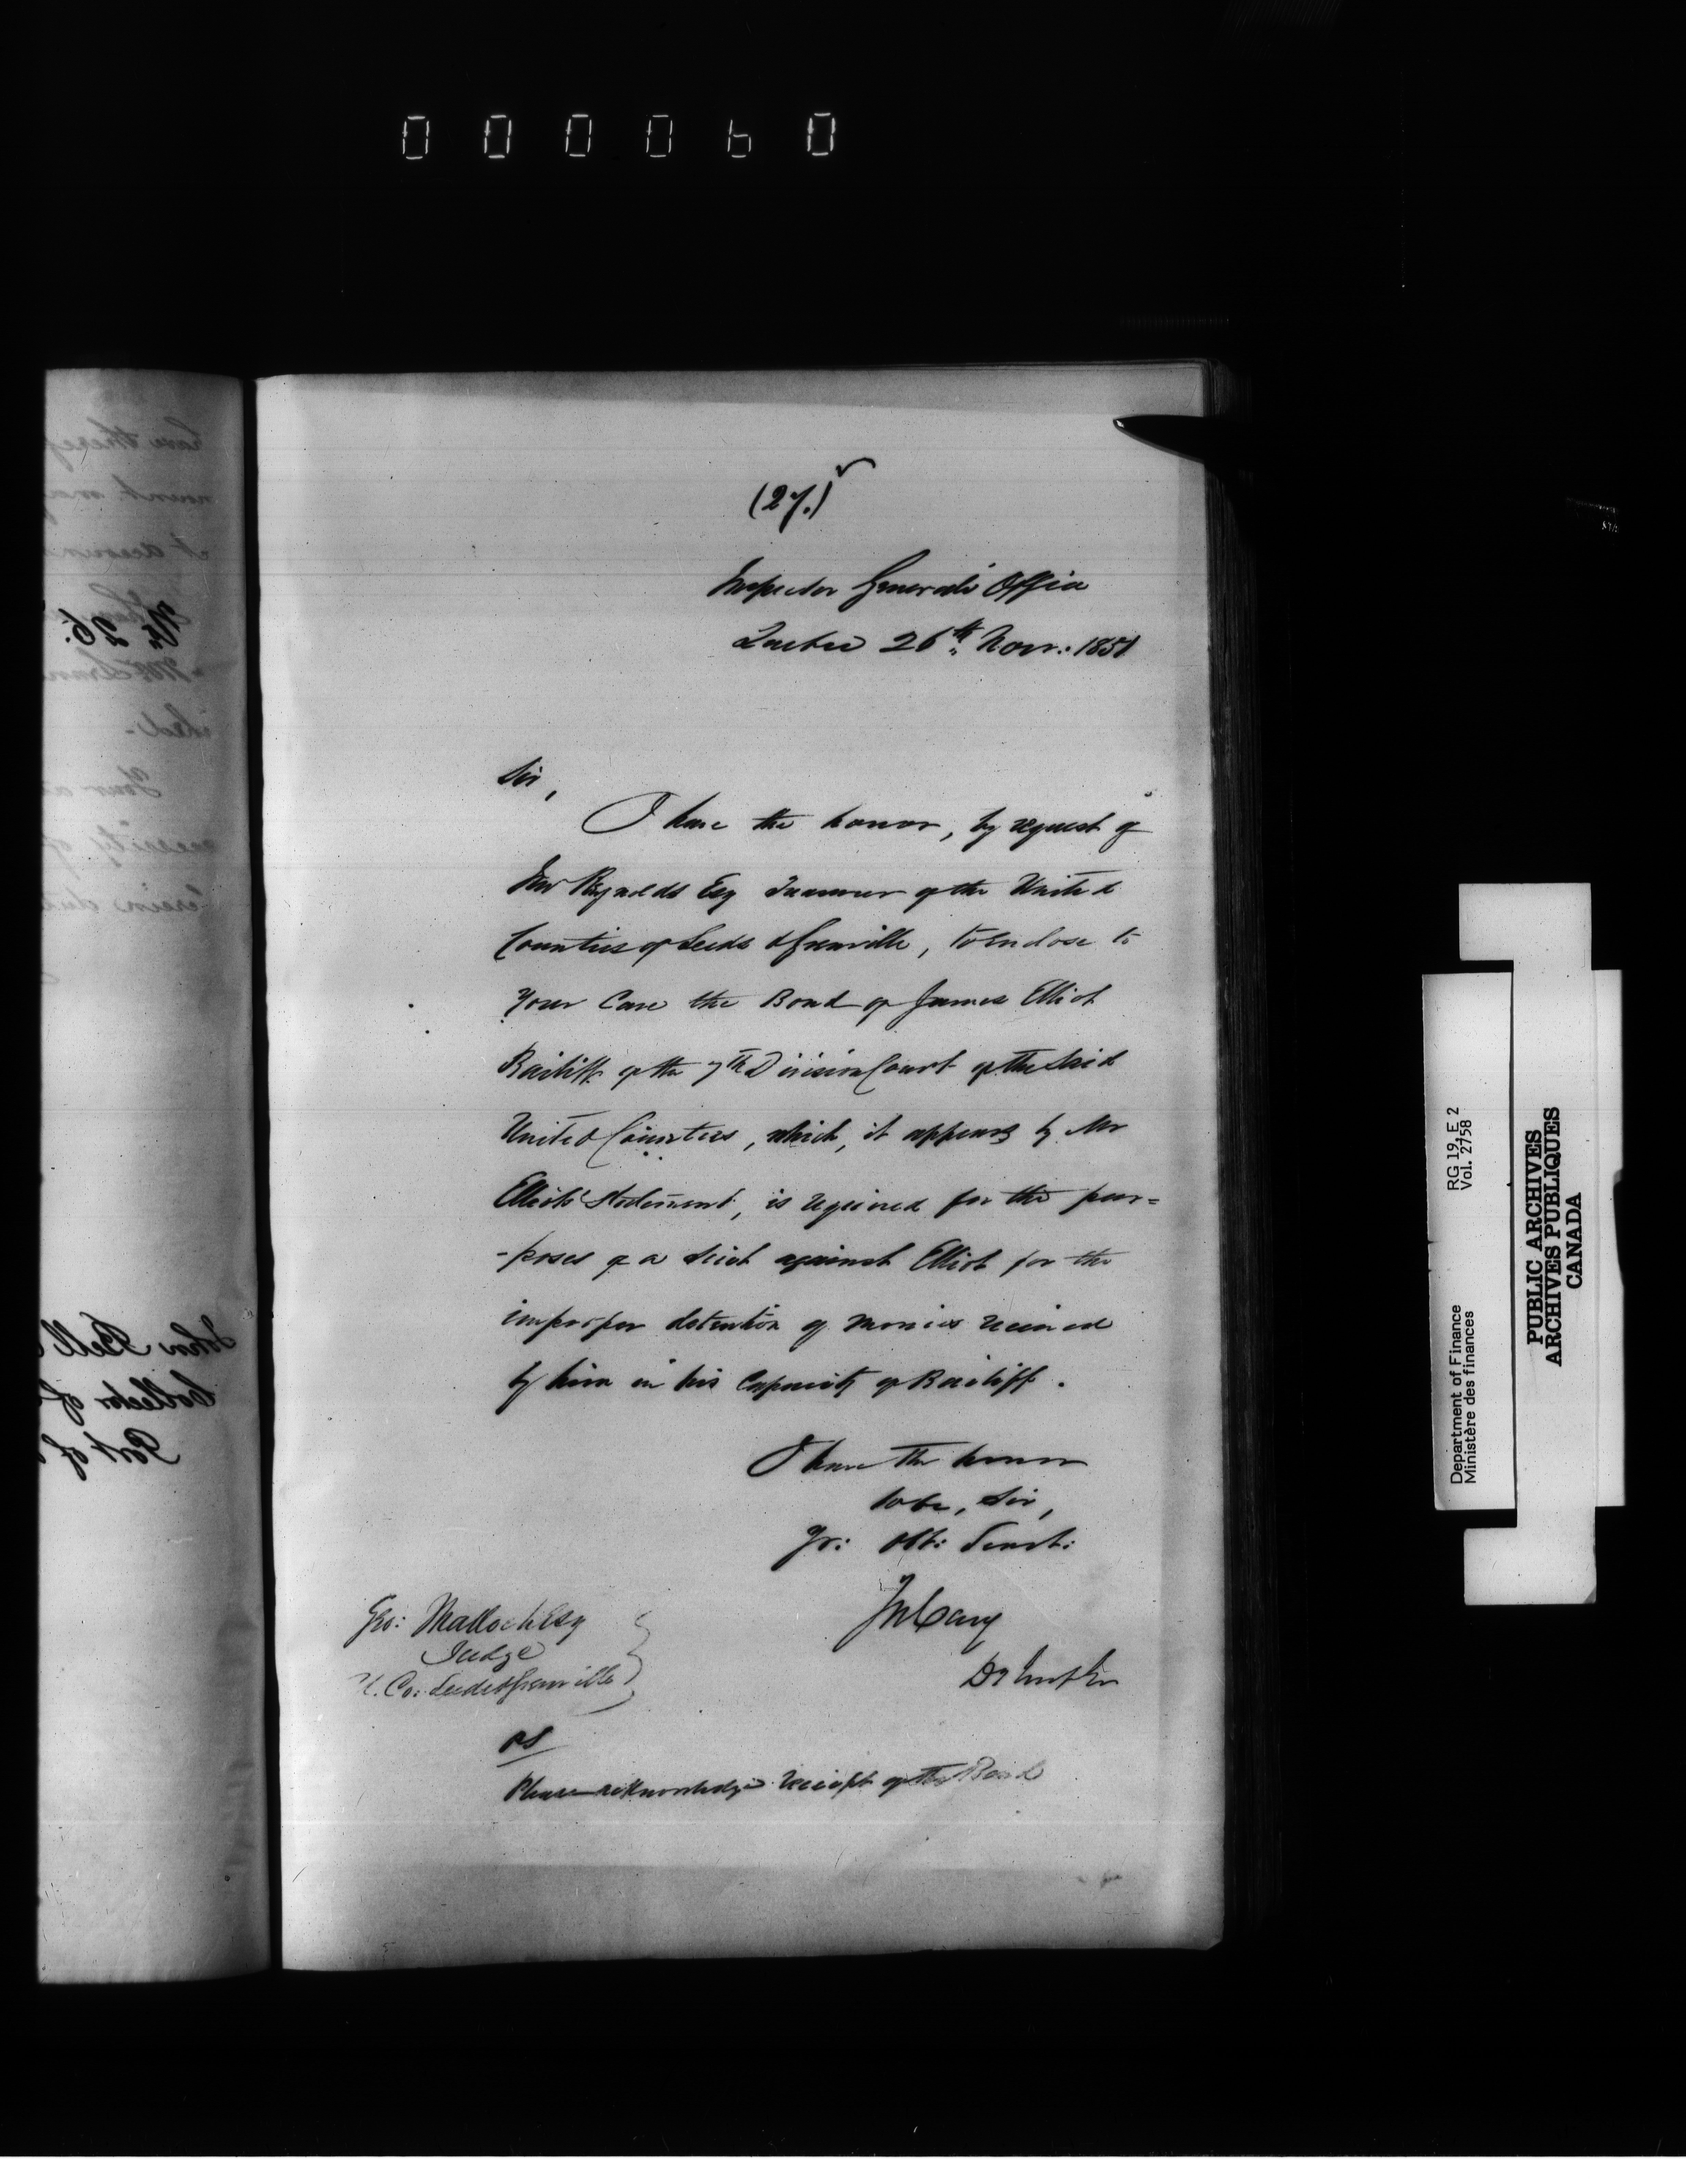 000060
(27.)
Inspector General's Office
Quebec 26th Novr: 1851
Sir,
I have the honor, by request of
Reynolds Esq Treasurer of the United
Counties of Leeds & Grenville, to enclose to
Your Care the Bond of James Elliot
Bailiff of the 7th Division Court of the Said
United Counties, which, it appears by Mr
Elliot's Statement, is required for the pur=
-poses of a Suit against Elliot for the
improper detention of monies received
by him in his Capacity of Bailiff.
I have the honor
to be, Sir,
Yr: Obt: Servt:
Jos Cary
DY Insp Gen
Geo: Malloch Esq
Judge
U. Co: Leeds & Grenville
PS
Please acknowledge receipt of the Bond
No. 26.
John Bell
Collector of
Port of
RG 19, E 2
Vol. 2758
Department of Finance
Ministère des finances
PUBLIC ARCHIVES
ARCHIVES PUBLIQUES
CANADA